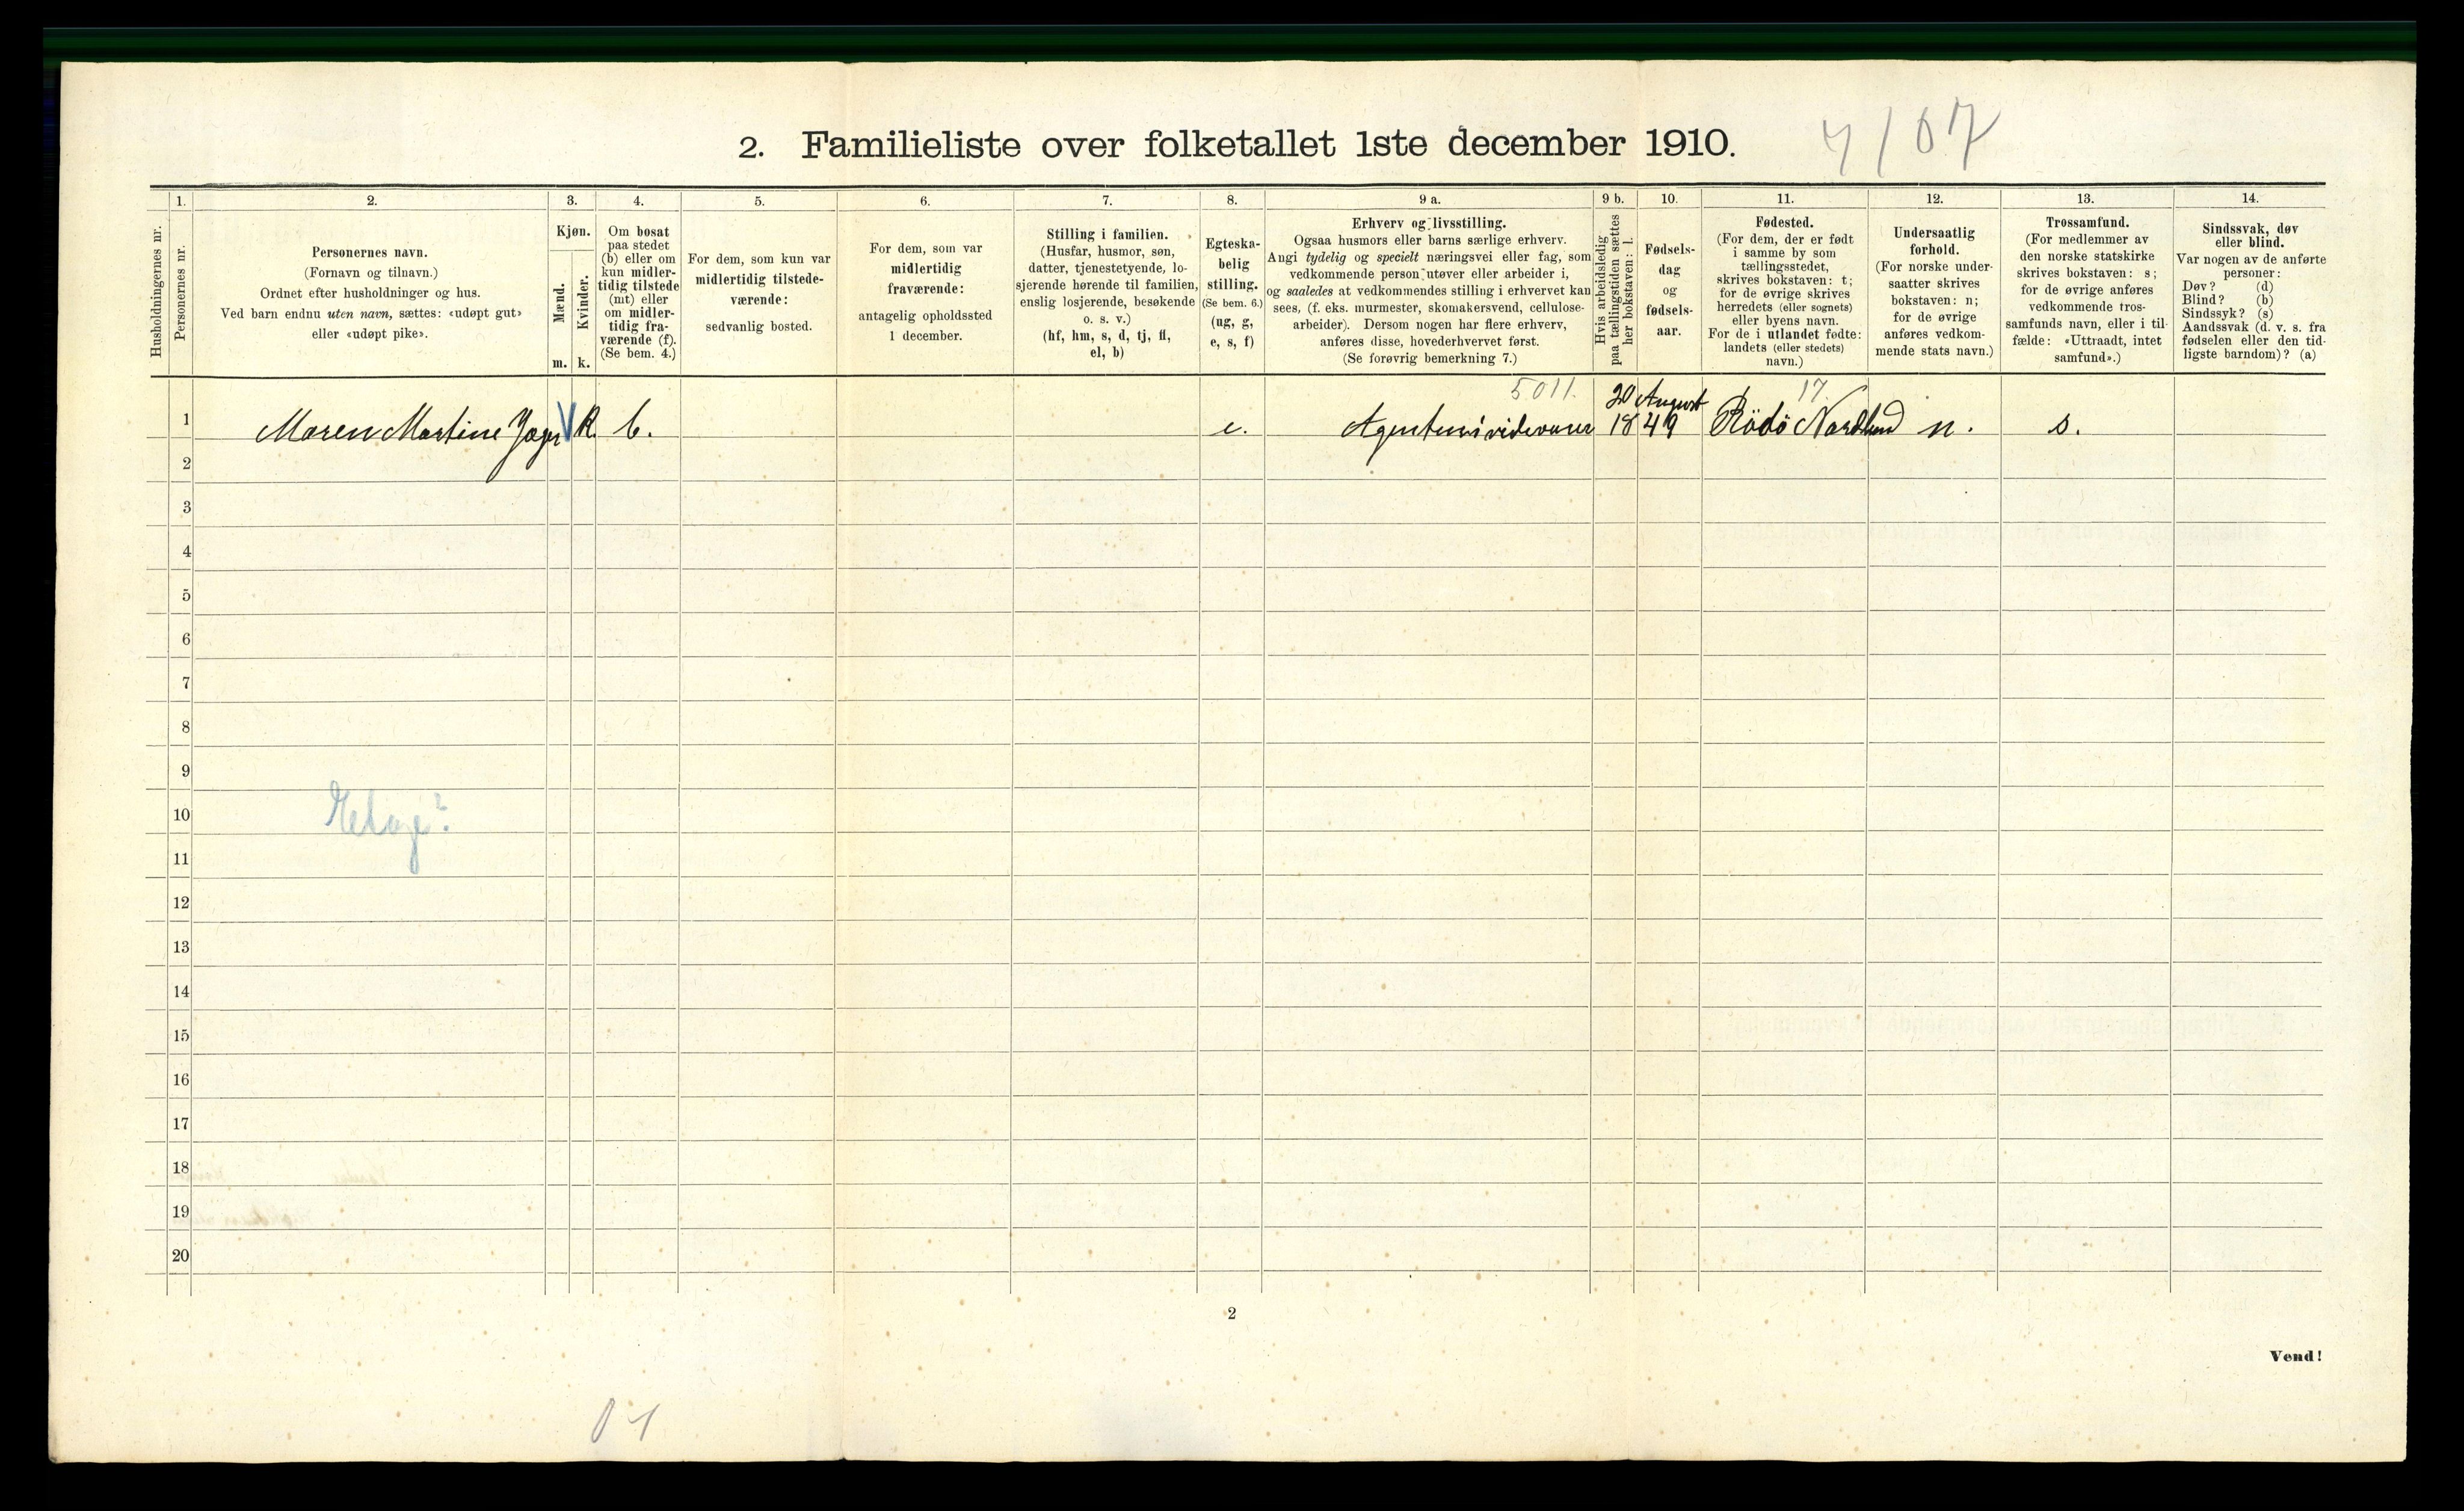 2. Familieliste over folketallet 1ste december 1910.
4/07
Husholdningernes nr.
1.
Personernes nr.
2.
Personernes navn.
(Fornavn og tilnavn.)
Ordnet efter husholdninger og hus.
Ved barn endnu uten navn, sættes: «udøpt gut»
eller «udøpt pike».
3.
Kjøn.
Mænd.
Kvinder.
m. k.
4.
Om bosat
paa stedet
(b) eller om
kun midler-
tidig tilstede
(mt) eller
om midler-
tidig fra-
værende (f).
(Se bem. 4.)
5.
For dem, som kun var
midlertidig tilstede-
værende:
sedvanlig bosted.
6.
For dem, som var
midlertidig
fraværende:
antagelig opholdssted
1 december.
7.
Stilling i familien.
(Husfar, husmor, søn,
datter, tjenestetyende, lo-
sjerende hørende til familien,
enslig losjerende, besøkende
o. s. v.)
(hf, hm, s, d, tj, fl,
el, b)
8.
Egteska-
belig
stilling.
(Se bem. 6.)
(ug, g,
e, s, f)
9 a.
Erhverv og livsstilling.
Ogsaa husmors eller barns særlige erhverv.
Angi tydelig og specielt næringsvei eller fag, som
vedkommende person utøver eller arbeider i,
og saaledes at vedkommendes stilling i erhvervet kan
sees, (f. eks. murmester, skomakersvend, cellulose-
arbeider). Dersom nogen har flere erhverv,
anføres disse, hovederhvervet først.
(Se forøvrig bemerkning 7.)
9 b.
Hvis arbeidsledig
paa tællingstiden sættes
her bokstaven: l.
10.
Fødsels-
dag
og
fødsels-
aar.
11.
Fødested.
(For dem, der er født
i samme by som
tællingsstedet,
skrives bokstaven: t;
for de øvrige skrives
herredets (eller sognets)
eller byens navn.
For de i utlandet fødte:
landets (eller stedets)
navn.)
12.
Undersaatlig
forhold.
(For norske under-
saatter skrives
bokstaven: n;
for de øvrige
anføres vedkom-
mende stats navn.)
13.
Trossamfund.
(For medlemmer av
den norske statskirke
skrives bokstaven: s;
for de øvrige anføres
vedkommende tros-
samfunds navn, eller i til-
fælde: «Uttraadt, intet
samfund».)
14.
Sindssvak, døv
eller blind.
Var nogen av de anførte
personer:
Døv? (d)
Blind? (b)
Sindssyk? (s)
Aandssvak (d. v. s. fra
fødselen eller den tid-
ligste barndom)? (a)
5011. 20 August 17.
1 Maren Martine Jæger K. b. e. Agentur i videvarer 1849 Rödö Nordland n. s.
2
3
4
5
6
7
8
9
10
11
12
13
14
15
16
17
18
19
20
2
Vend!
01